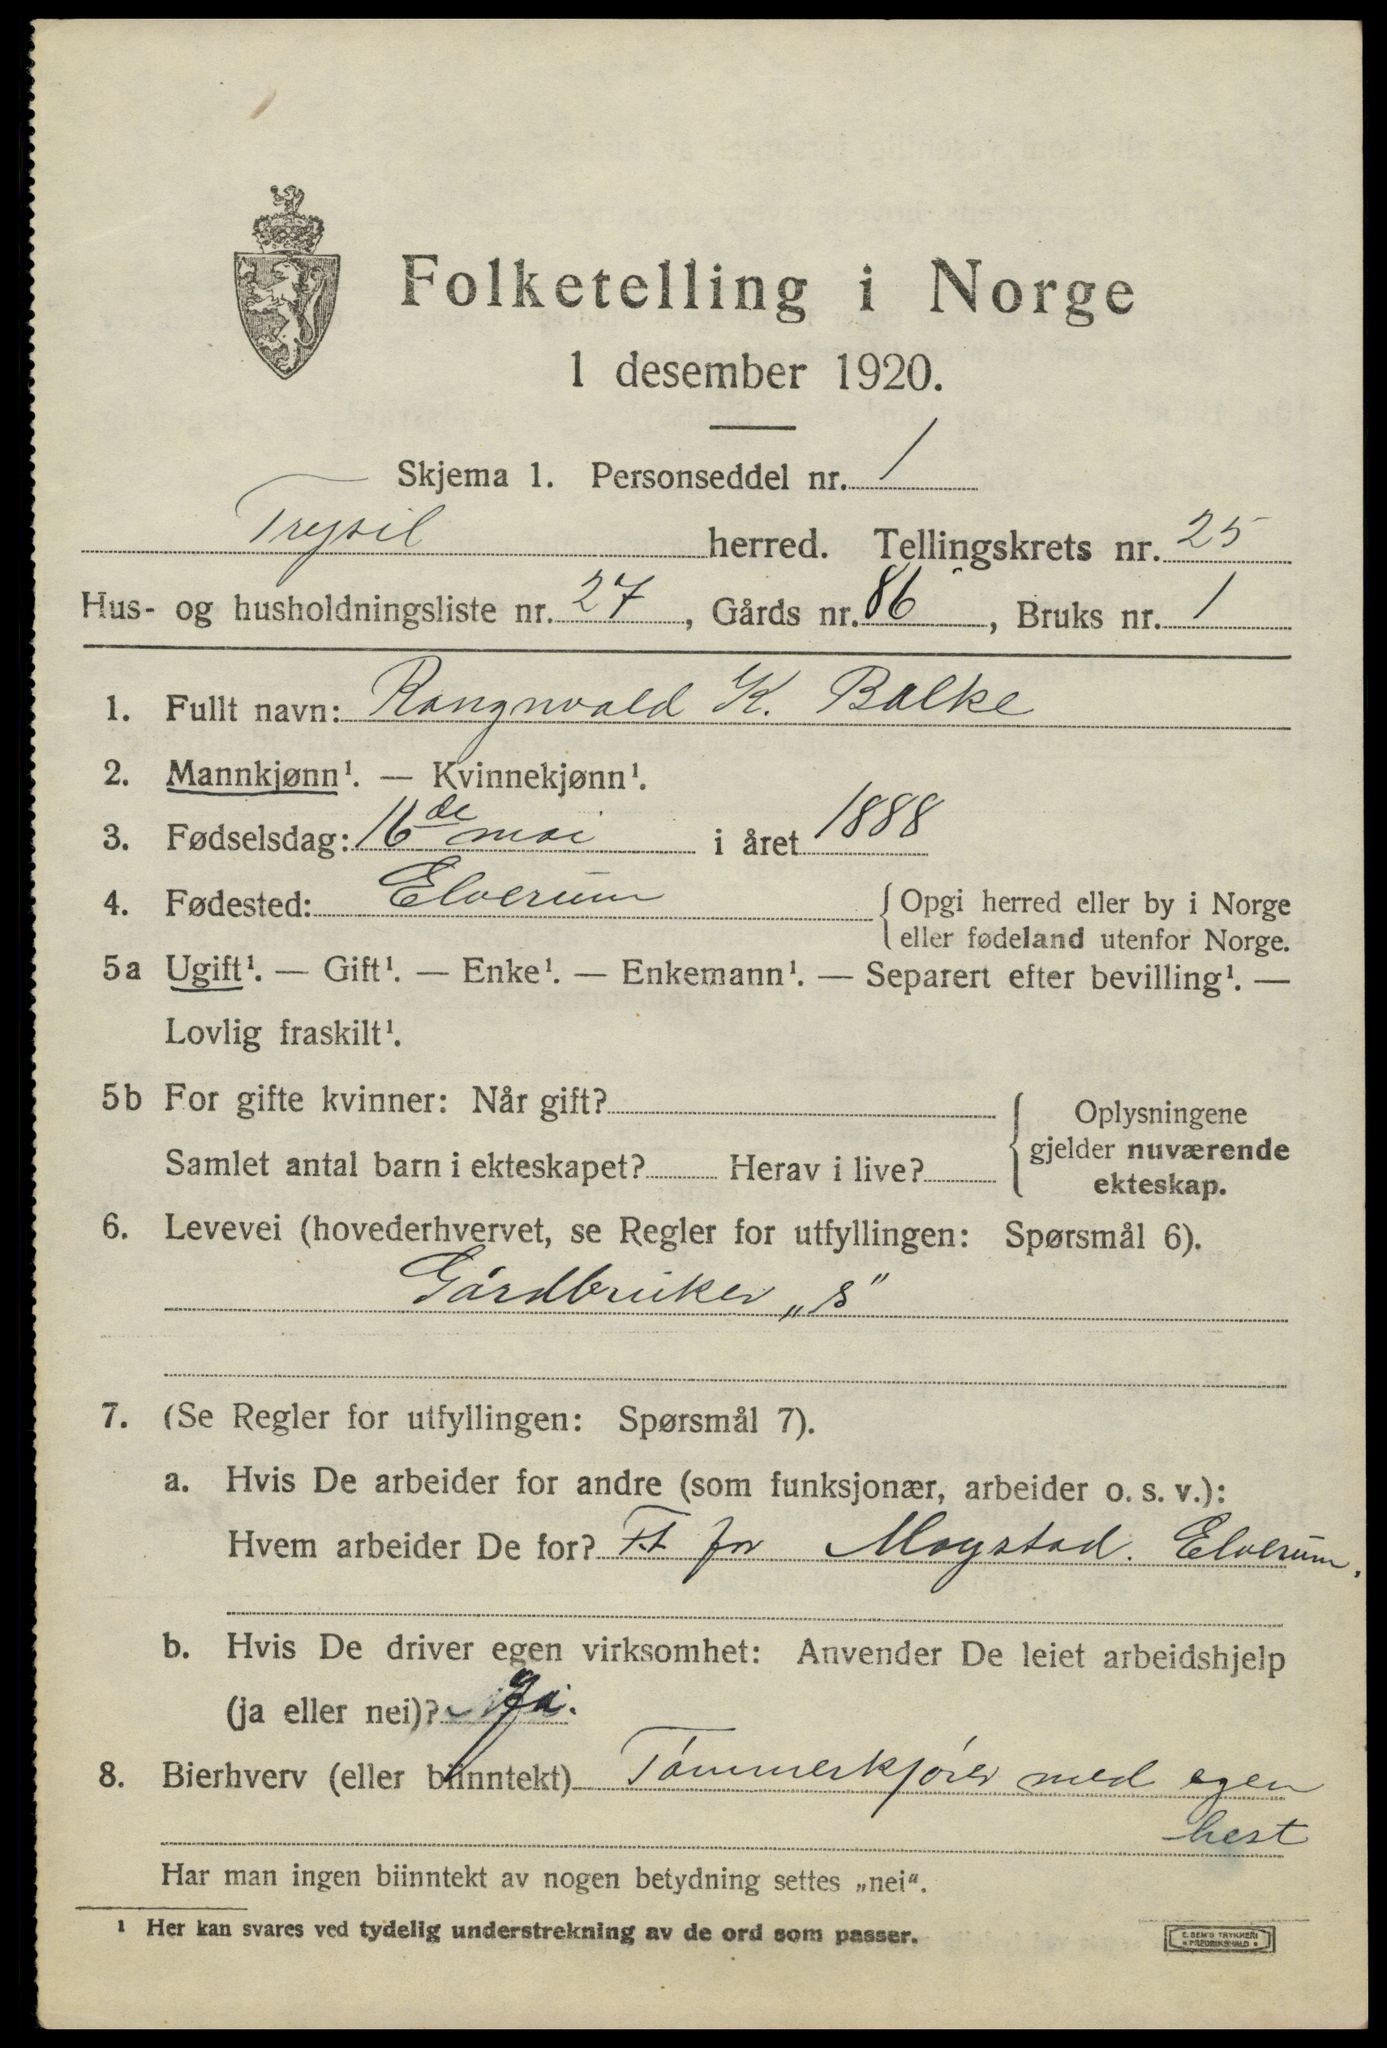 Folketelling i Norge
1 desember 1920.
Skjema 1. Personseddel nr. 1
Trysil herred. Tellingskrets nr. 25
Hus- og husholdningsliste nr. 27, Gårds nr. 86, Bruks nr. 1
1. Fullt navn: Rangnvald K. Balke
2. Mannkjønn¹. — Kvinnekjønn¹.
3. Fødselsdag: 16de mai i året 1888
4. Fødested: Elverum { Opgi herred eller by i Norge
eller fødeland utenfor Norge.
5a Ugift¹. — Gift¹. — Enke¹. — Enkemann¹. — Separert efter bevilling¹. —
Lovlig fraskilt¹.
5b For gifte kvinner: Når gift? { Oplysningene
gjelder nuværende
Samlet antal barn i ekteskapet? Herav i live?
ekteskap.
6. Levevei (hovederhvervet, se Regler for utfyllingen: Spørsmål 6).
Gårdbruker „s"
7. (Se Regler for utfyllingen: Spørsmål 7).
a. Hvis De arbeider for andre (som funksjonær, arbeider o. s. v.):
Hvem arbeider De for? for Mogstad. Elverum.
b. Hvis De driver egen virksomhet: Anvender De leiet arbeidshjelp
(ja eller nei)? Ja.
8. Bierhverv (eller biinntekt) Tømmerkjører med egen
hest
Har man ingen biinntekt av nogen betydning settes „nei".
¹ Her kan svares ved tydelig understrekning av de ord som passer.
E. SEM'S TRYKKERI
FREDRIKSHALD